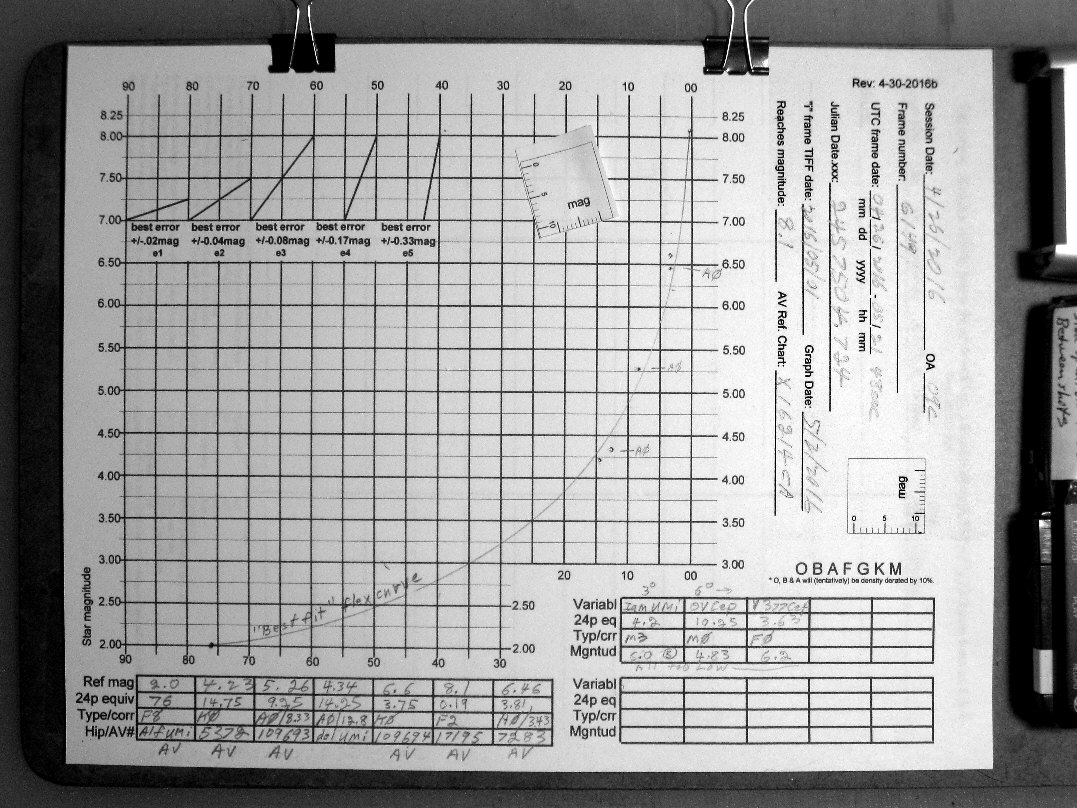 90 80 70 60 50 40 20 10 00
Rev: 4-30-2016b
8.25 8.25
8.00 8.00
7.50 7.50
7.00 7.00
best error best error best error best error best error
+/-.02mag +/-0.04mag +/-0.08mag +/-0.17mag +/-0.33mag
e1 e2 e3 e4 e5
0 5 10
mag
6.50 6.50
AØ
6.00 6.00
5.50 5.50
AØ
5.00 5.00
4.50 4.50
AØ
4.00 4.00
3.50 3.50
3.00 3.00
20 10 00
2.50 2.50
"Best fit" flex curve
2.00 2.00
Star magnitude
90 80 70 60 50 40 30
Session Date: 4/25/2016 OA
Frame number:
UTC frame date:
mm dd yyyy hh mm
Julian Date.xxx:
"f" frame TIFF date: Graph Date: 5/2/2016
Reaches magnitude: 8.1 AV Ref. Chart:
mag
0 5 10
OBAFGKM
* O, B & A will (tentatively) be density derated by 10%.
3° 6°
Variabl OV Cep
24p eq 4.2 10.25 3.63
Typ/crr M3 MØ FØ
Mgntud 5.0 4.83 6.2
All too low
Variabl
24p eq
Typ/crr
Mgntud
Ref mag 2.0 4.23 5.26 4.34 6.6 8.1 6.46
24p equiv 76 14.75 9.25 14.25 3.75 0.19 3.81
Type/corr F8 KØ AØ/8.33 AØ/12.8 KØ F2 AØ/3.43
Hip/AV# Alf UMi 5372 109693 del UMi 109694 17195 7283
AV AV AV AV AV AV
Between shots